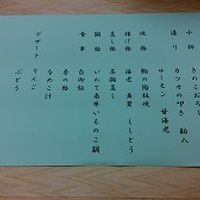 小鉢 きのこおろし
造り カツオの叩き 勘八
サーモン 甘海老
焼物 鮭の陶板焼
揚げ物 海老 舞茸 ししとう
蒸し物 茶碗蒸し
鍋物 いわて南部いものこ鍋
食事 白御飯
香の物
なめこ汁
デザート りんご
ぶどう